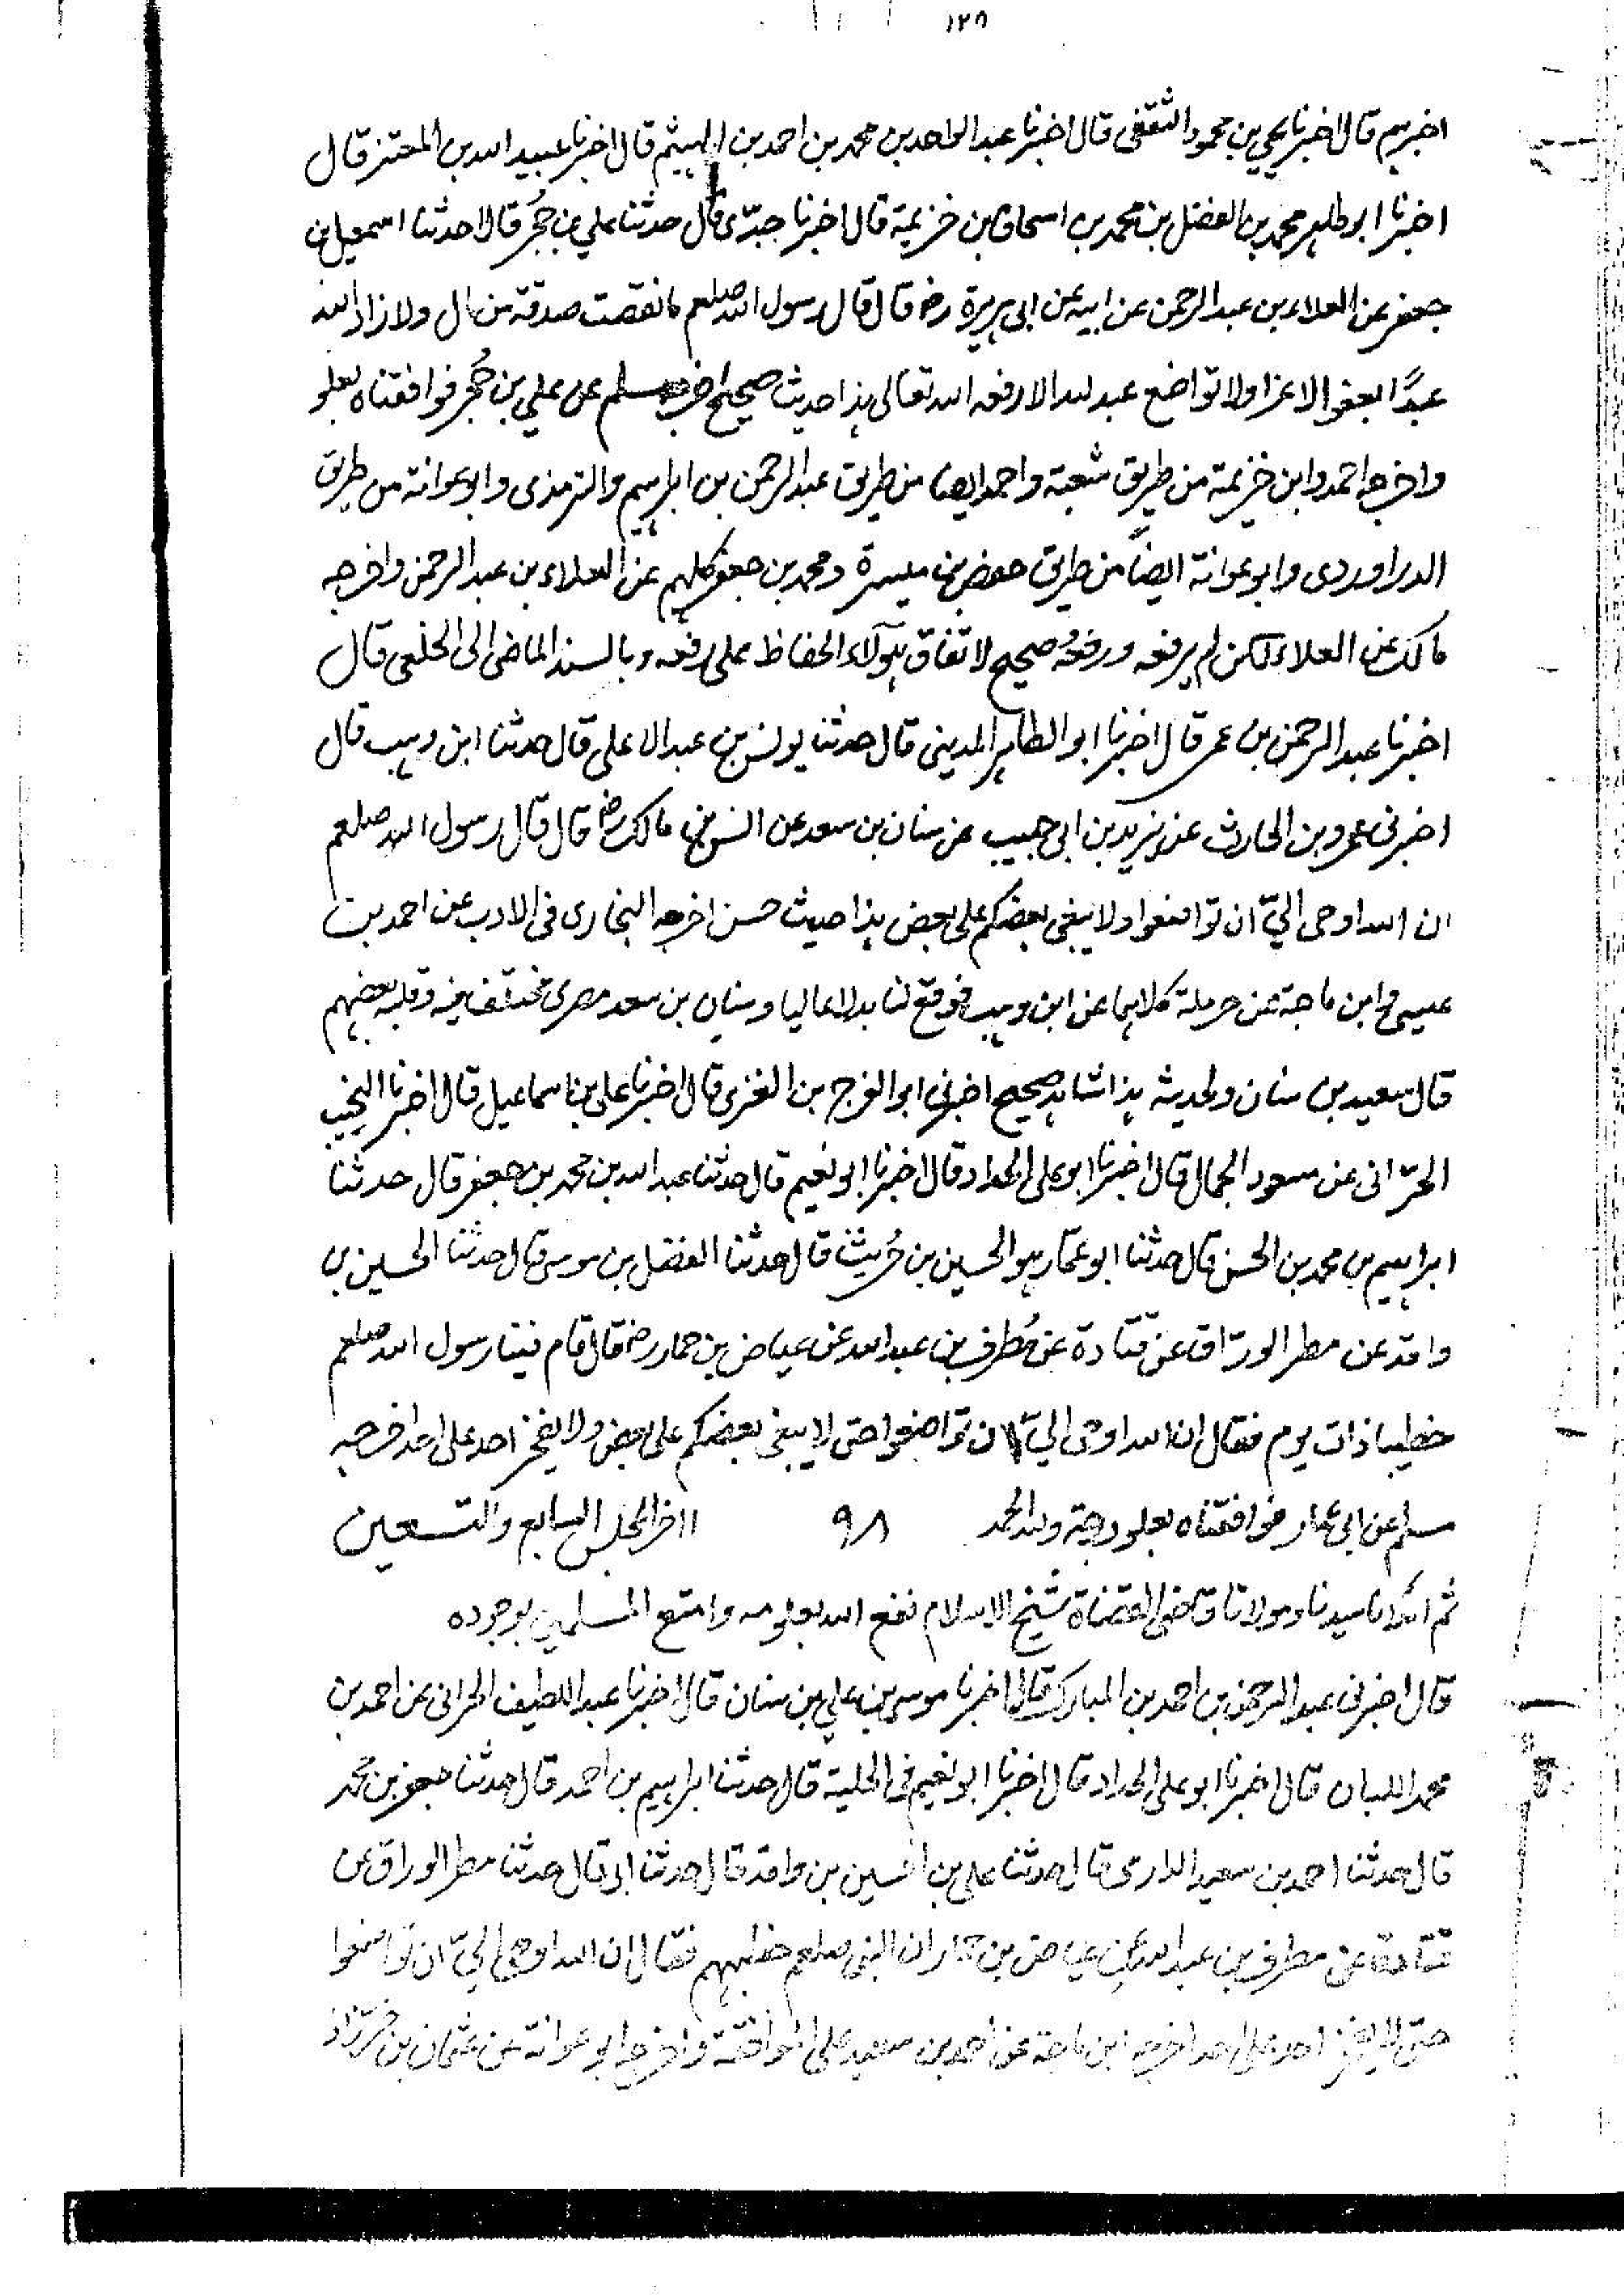 ١٢٥
اخبرهم قال اخبرنا يحيى بن محمود الثقفى قال اخبرنا عبد الواحد بن محمد بن احمد بن الهيثم قال اخبرنا عبيد الله بن المعتز قال
اخبرنا ابو طاهر محمد بن الفضل بن محمد بن اسحاق بن خزيمة قال اخبرنا جدّى قال حدثنا علي بن حجُر قال حدثنا اسمعيل بن
جعفر عن العلاء بن عبد الرحمن عن ابيه عن ابى هريرة رض قال قال رسول الله صلعم ما نقصت صدقة من مال ولا زاد الله
عبدًا بعفو الا عزا ولا تواضع عبد لله الا رفعه الله تعالى هذا حديث صحيح اخرجه مسلم عن علي بن حُجر فوافقناه بعلو
واخرجه احمد وابن خزيمة من طريق شعبة واحمد ايضا من طريق عبد الرحمن بن ابراهيم والترمذى وابو عوانة من طريق
الدراوردى وابو عوانة ايضاً من طريق حفص بن ميسرة ومحمد بن جعفر كلهم عن العلاء بن عبد الرحمن واخرجه
مالك عن العلاء لكن لم يرفعه ورفعُه صحيح لاتفاق هولآء الحفاظ على رفعه وبالسند الماضى الى الخلعى قال
اخبرنا عبد الرحمن بن عمر قال اخبرنا ابو الطاهر المدينى قال حدثنا يونس بن عبد الاعلى قال حدثنا ابن وهب قال
اخبرنى عمرو بن الحارث عن يزيد بن ابى حبيب عن سنان بن سعد عن انس بن مالك رض قال قال رسول الله صلعم
ان الله اوحى اليّ ان تواضعوا ولا يبغى بعضكم على بعض هذا حديث حسن اخرجه البخارى فى الادب عن احمد بن
عيسى وابن ماجة عن حرملة كلاهما عن ابن وهب فوقع لنا بدلا عاليا وسنان بن سعد مصرى مختلف فيه وقلبه بعضهم
قال سعيد بن سنان ولحديثه هذا شاهد صحيح اخبرنى ابو الفرج بن الغزى قال اخبرنا على بن اسماعيل قال اخبرنا النجيب
الحرّانى عن مسعود الجمال قال اخبرنا ابو على الحداد قال اخبرنا ابو نعيم قال حدثنا عبد الله بن محمد بن جعفر قال حدثنا
ابراهيم بن محمد بن الحسن قال حدثنا ابو عمّار هو الحسين بن حُريث قال حدثنا الفضل بن موسى قال حدثنا الحسين بن
واقد عن مطر الورّاق عن قتادة عن مُطرف بن عبد الله عن عياض بن حمار رض قال قام فينا رسول الله صلعم
خطيبا ذات يوم فقال ان الله اوحى اليّ ان تواضعوا حتى لا يبغى بعضكم على بعض ولا يفخر احد على احد اخرجه
مسلم عن ابى عمار فوافقناه بعلو درجة ولله الحمد ٩٨ اخر المجلس السابع والتسعين
ثم املانا سيدنا ومولانا قاضى القضاة شيخ الاسلام نفع الله بعلومه وامتع المسلمين بوجوده
قال اخبرنى عبد الرحمن بن احمد بن المبارك قال اخبرنا موسى بن علي بن سنان قال اخبرنا عبد اللطيف الحرانى عن احمد بن
محمد اللبان قال اخبرنا ابو على الحداد قال اخبرنا ابو نعيم فى الحلية قال حدثنا ابراهيم بن احمد قال حدثنا جعفر بن محمد
قال حدثنا احمد بن سعيد الدارمى قال حدثنا على بن الحسين بن واقد قال حدثنا ابى قال حدثنا مطر الوراق عن
قتادة عن مطرف بن عبد الله عن عياض بن حمار ان النبى صلعم خطبهم فقال ان الله اوحى اليّ ان تواضعوا
حتى لا يفخر احد على احد اخرجه ابن ماجة عن احمد بن سعيد على الموافقة واخرجه ابو عوانة عن عثمان بن خرّزاذ